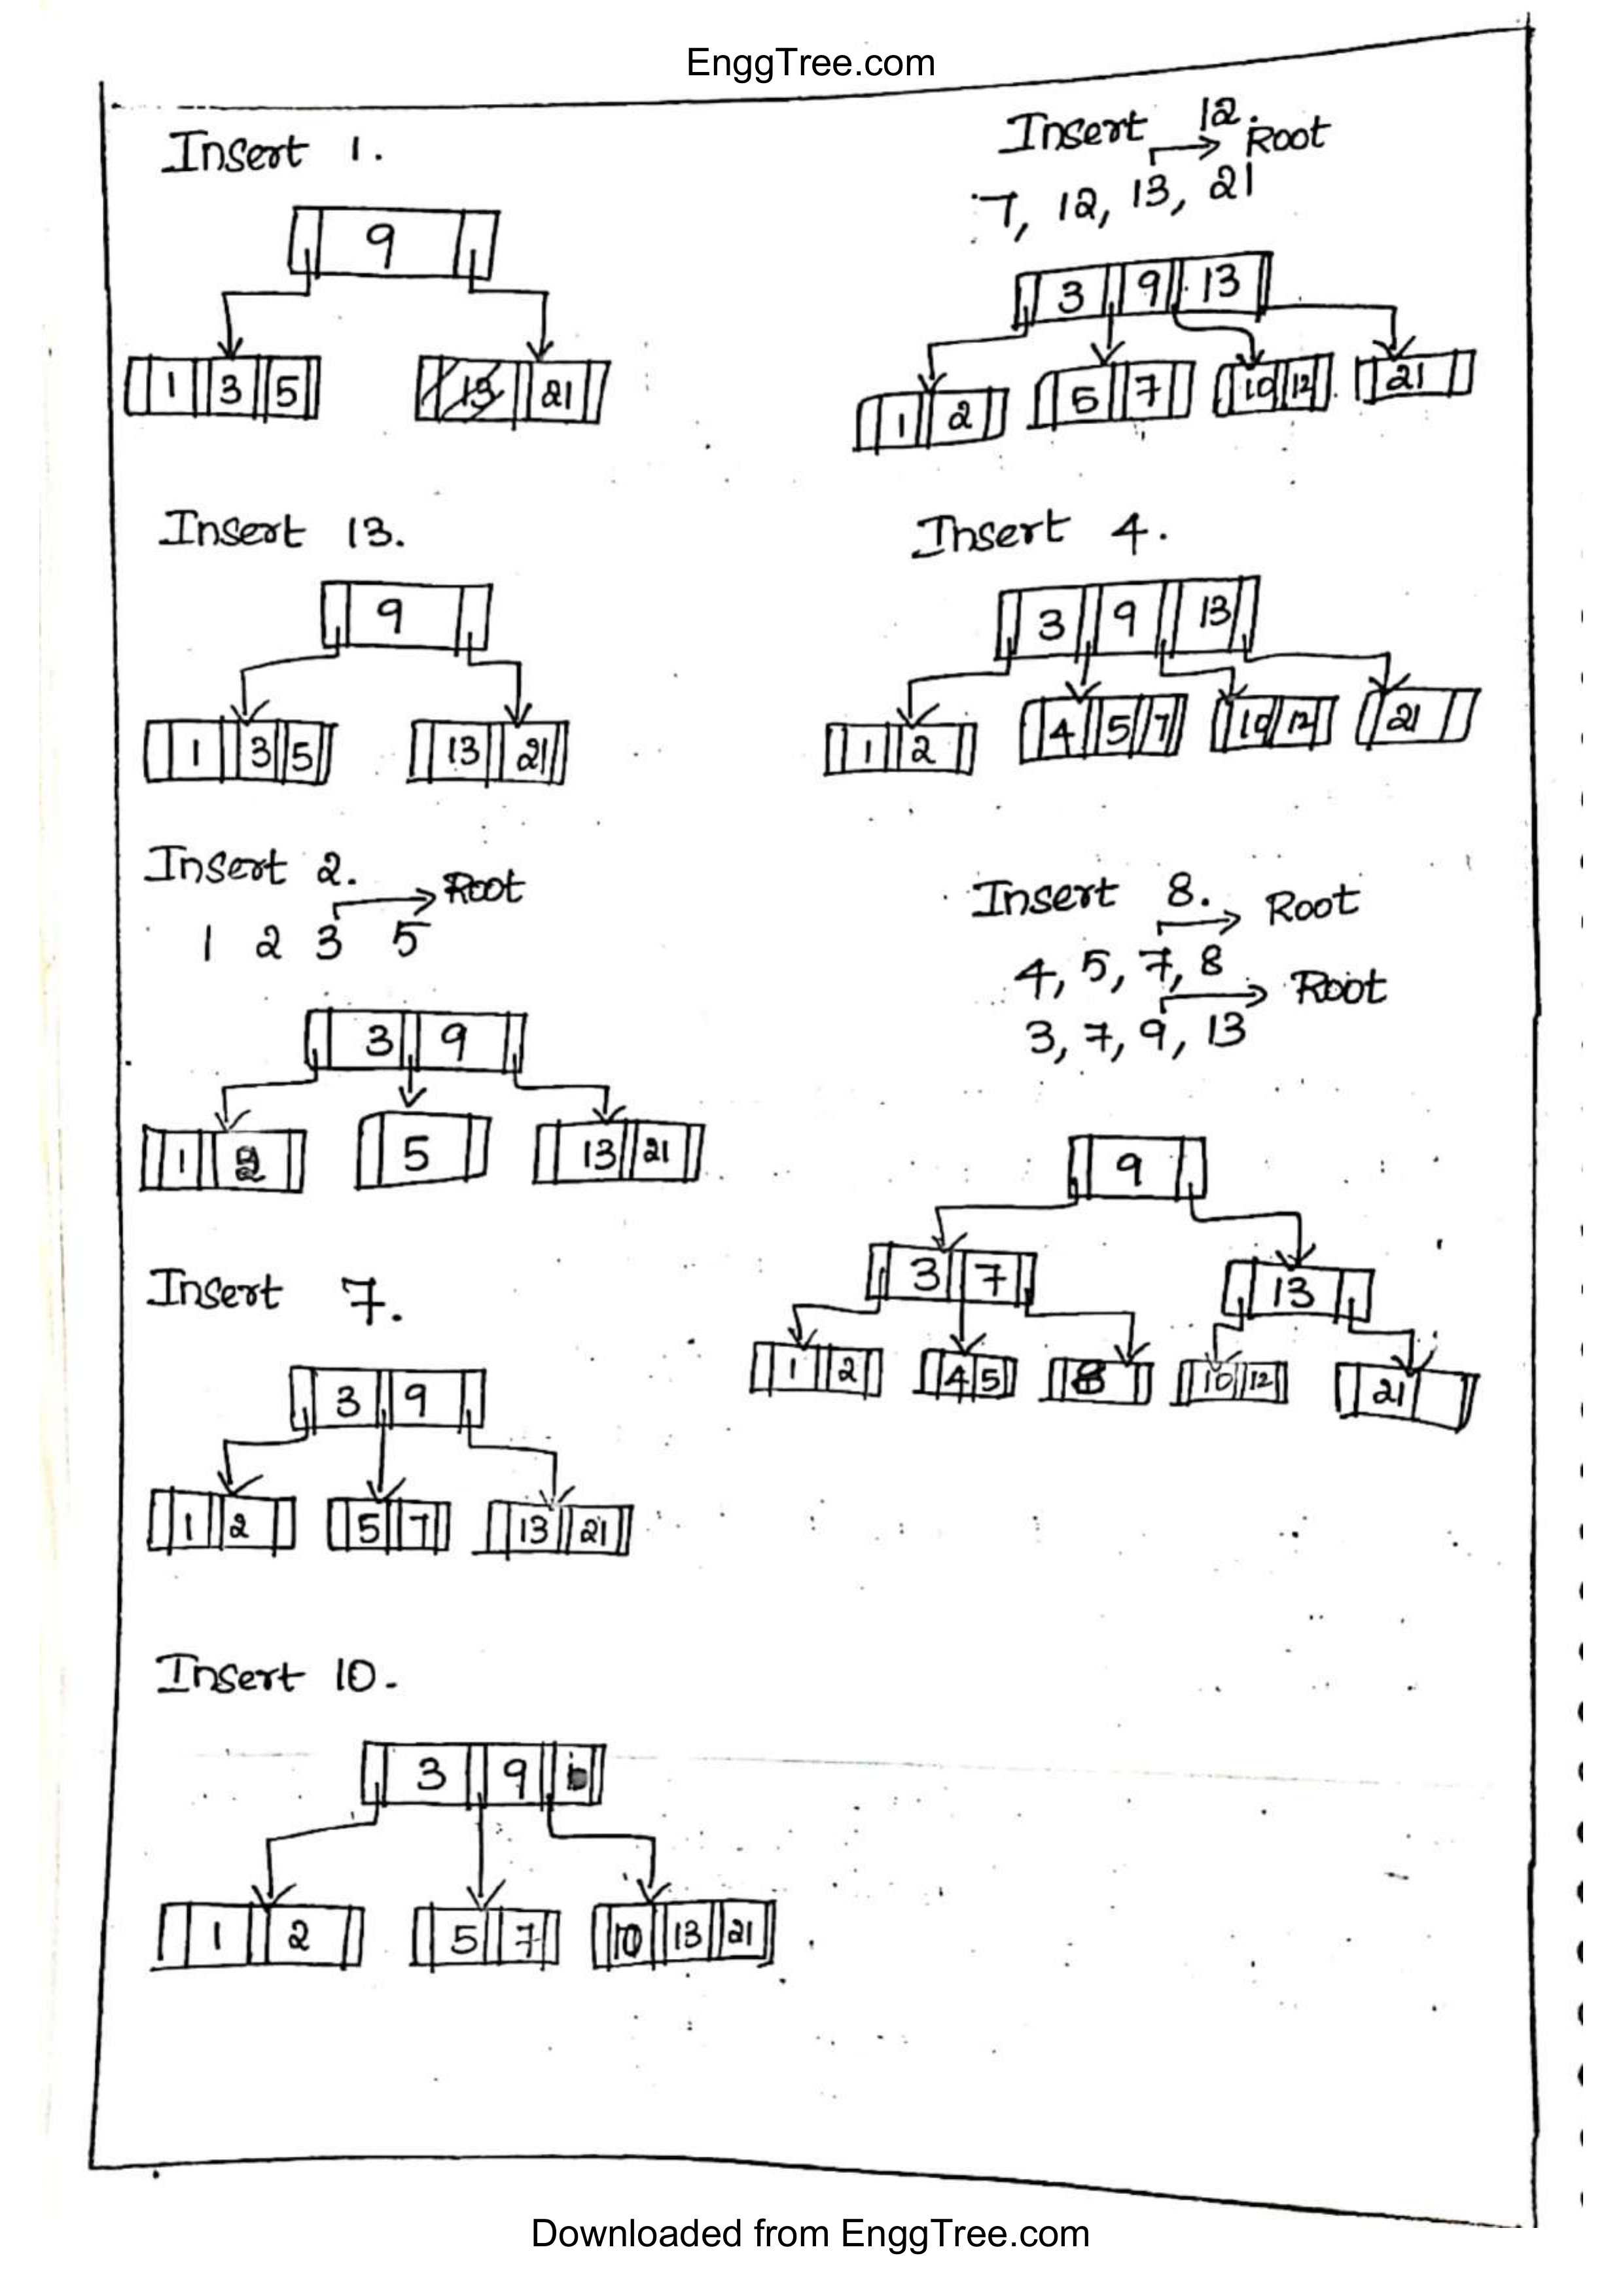 EnggTree.com
Insert 1.
9
1 3 5 21
Insert 13.
9
1 3 5 13 21
Insert 2.
Root
1 2 3 5
3 9
1 2 5 13 21
Insert 7.
3 9
1 2 5 7 13 21
Insert 10.
3 9
1 2 5 7 10 13 21
Insert 12.
Root
7, 12, 13, 21
3 9 13
1 2 5 7 10 12 21
Insert 4.
3 9 13
1 2 4 5 7 10 12 21
Insert 8.
Root
4, 5, 7, 8
Root
3, 7, 9, 13
9
3 7 13
1 2 4 5 8 10 12 21
Downloaded from EnggTree.com